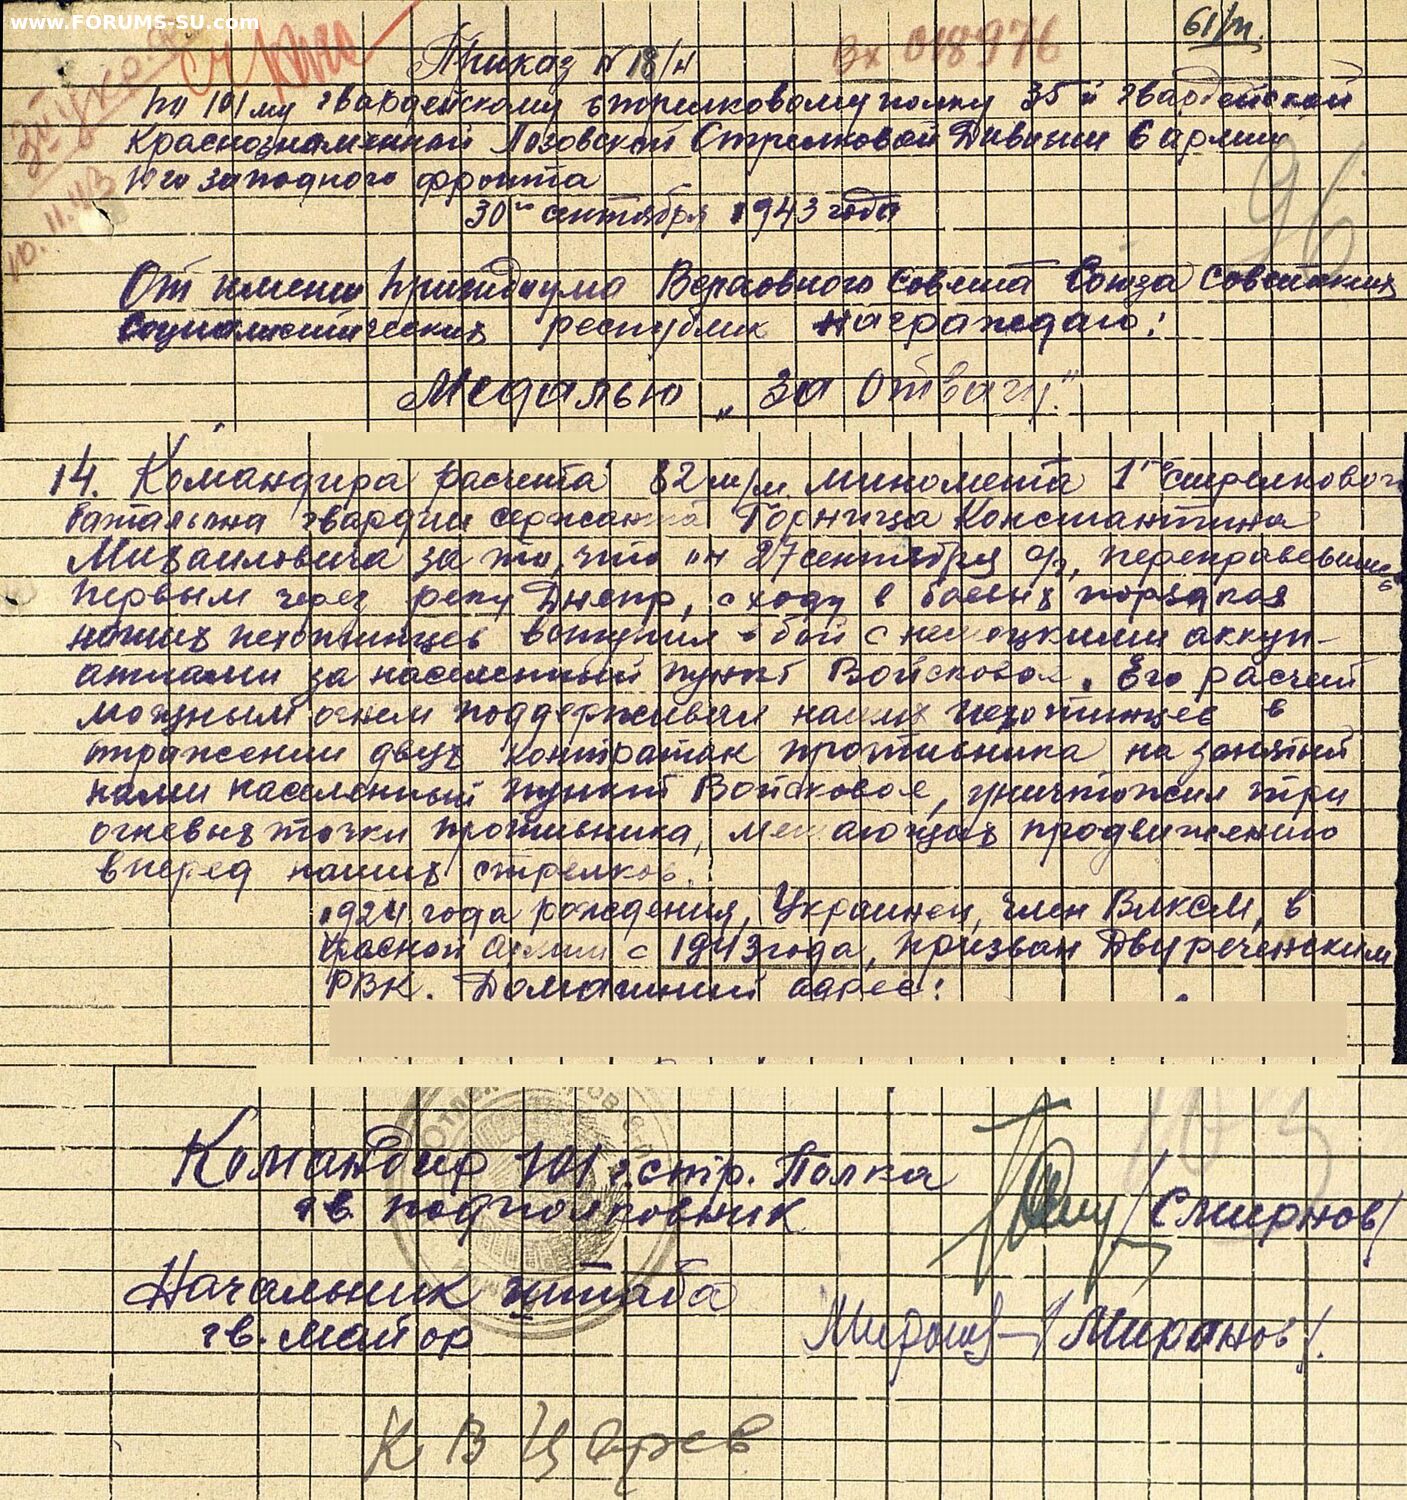 www.FORUMS-SU.com
61/м.
Приказ № 18/н
Вх 018976
по 101му гвардейскому стрелковому полку 35й гвардейской
Краснознаменной Лозовской Стрелковой Дивизии 6 армии
Юго западного фронта
96
10.11.43
30го сентября 1943 года
От имени Президиума Верховного Совета Союза Советских
Социалистических республик награждаю:
Медалью „За Отвагу."
14. Командира расчета 82 м/м. миномета 1го стрелкового
батальона гвардии сержанта Горница Константина
Михайловича за то, что он 27 сентября с/г, переправевшись
первым через реку Днепр, с ходу в боевых порядках
наших пехотинцев вступил в бой с немецкими аккуп-
антами за населенный пункт Войсковое. Его расчет
мощным огнем поддерживал наших пехотинцев в
отражении двух контратак противника на занятый
нами населенный пункт Войсковое, уничтожил три
огневых точки противника, мешающих продвижению
вперед наших стрелков.
1924 года рождения, Украинец, член ВЛКСМ, в
Красной Армии с 1943 года, призван Двуреченским
РВК. Домашний адрес:
Командир 101 г.стр. Полка
гв. подполковник /Смирнов/
Начальник штаба
гв. майор /Миронов/.
К В Царев